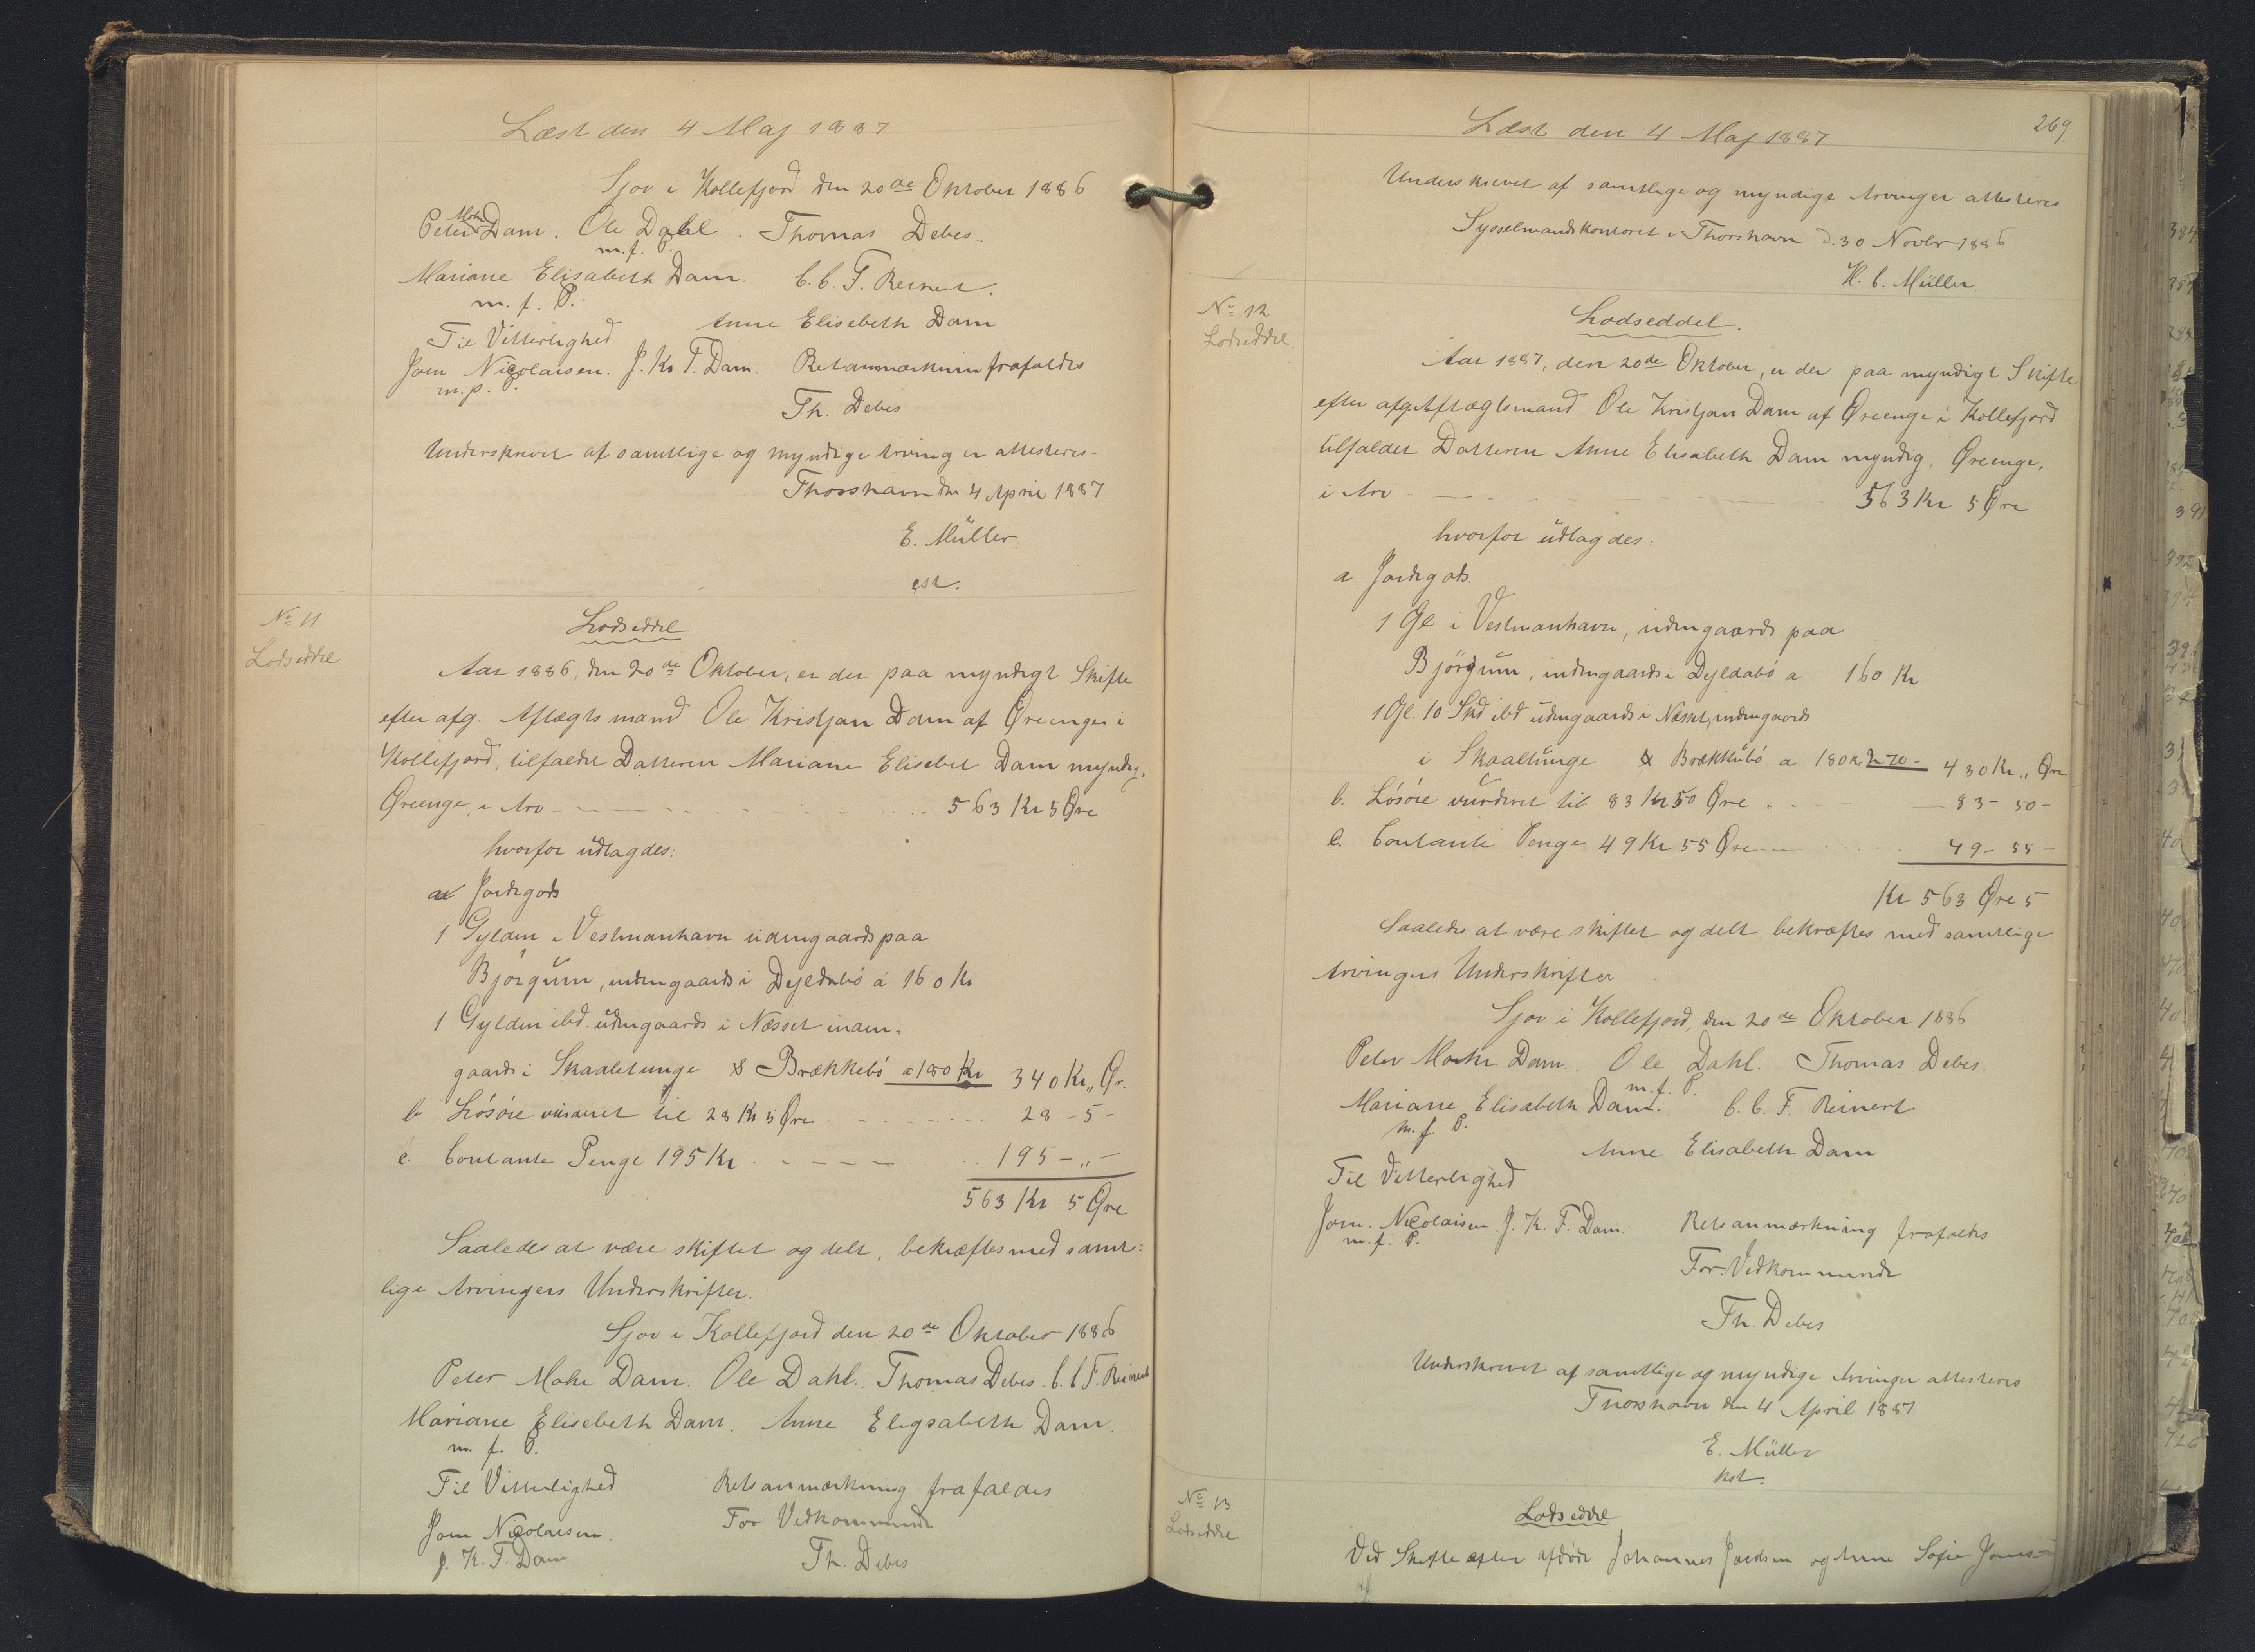 Læst den 4 Maj 1887
Sjov i Kollefjord den 20de Oktober 1886
Mohr
Peter Dam. Ole Dahl. Thomas Debes.
m. f. P.
Mariane Elisabeth Dam. C. C. F. Reinert.
m. f. P.
Anne Elisebeth Dam
Til Vitterlighed
Joen Nicolaisen. J. K. F. Dam. Retanmærkninn frafaldes
m. p. P.
Th. Debes
Underskrevet af samtlige og myndige Arvinger attesteres.
Thorshavn den 4 April 1887
E. Müller
cst.
No 11
Lodseddel
Lodseddel
Aar 1886, den 20de Oktober, er der paa myndigt Skifte
efter afg. Aftægtsmand Ole Kristjan Dam af Øreenge i
Kollefjord, tilfaldet Datteren Mariane Elisebet Dam myndig,
Øreenge, i Arv 563 Kr 5 Øre
hvorfor udlagdes:
a Jordegods
1 Gylden i Vestmanhavn udengaards paa
Bjørgum, indengaards i Dyldabó á 160 Kr
1 Gylden ibd. udengaards i Næsset inden-
gaards i Skaaletunge & Brækkebó a 180 Kr 340 Kr „ Ør.
b Løsøre vurderet til 28 Kr 5 Øre 28 - 5 -
c. Contante Penge 195 Kr 195 - „ -
563 Kr 5 Øre
Saaledes at være skiftet og delt, bekræftes med samt:
lige Arvingers Underskrifter.
Sjov i Kollefjord den 20de Oktober 1886
Peter Mohr Dam. Ole Dahl. Thomas Debes. C. C. F. Reinert
Mariane Elisebeth Dam. Anne Eligsabeth Dam.
m. f. P.
Til Vitterlighed Retsanmærkning frafaldes
Joen Nicolaisen. For Vedkommende
J. K. F. Dam Th. Debes
269.
Læst den 4 Maj 1887
Underskrevet af samtlige og myndige Arvinger attesteres
Sysselmandskontoret i Thorshavn d. 30 Novbr 1886
H. C. Müller
No 12
Lodseddel
Lodseddel.
Aar 1887, den 20de Oktober, er der paa myndigt Skifte
efter afg. Aftægtsmand Ole Kristjan Dam af Øreenge i Kollefjord
tilfaldet Datteren Anne Elisabeth Dam myndig, Øreenge,
i Arv 563 Kr 5 Øre
hvorfor udlagdes:
a Jordegods.
1 Gl i Vestmanhavn, udengaards paa
Bjørgum, indengaards i Dyldabó a 160 Kr
1 Gl. 10 Skd ibd udengaards i Næsset, indengaards
i Skaaltunge & Brækkubó a 180 Kr 270 - 430 Kr „ Øre
b. Løsøre vurderet til 83 Kr 50 Øre 83 - 50 -
c. Contante Penge 49 Kr 55 Øre 49 - 55 -
Kr 563 Øre 5
Saaledes at være skiftet og delt bekræftes med samtlige
Arvingers Underskrifter
Sjov i Kollefjord, den 20de Oktober 1886
Peter Mohr Dam. Ole Dahl. Thomas Debes.
m. f. P.
Mariane Elisabeth Dam. C. C. F. Reinert
m. f. P.
Anne Elisabeth Dam
Til Vitterlighed
Joen. Nicolaisen J. K. F. Dam. Retsanmærkning frafaldes
m. f. P.
For Vedkommende
Th. Debes
Underskrevet af samtlige og myndige Arvinger attesteres
Thorshavn den 4 April 1887
E. Müller
kst.
No 13
Lodseddel
Lodseddel
Ved Skifte efter afdøde Johannes Joensen og Anne Sofie Joens-